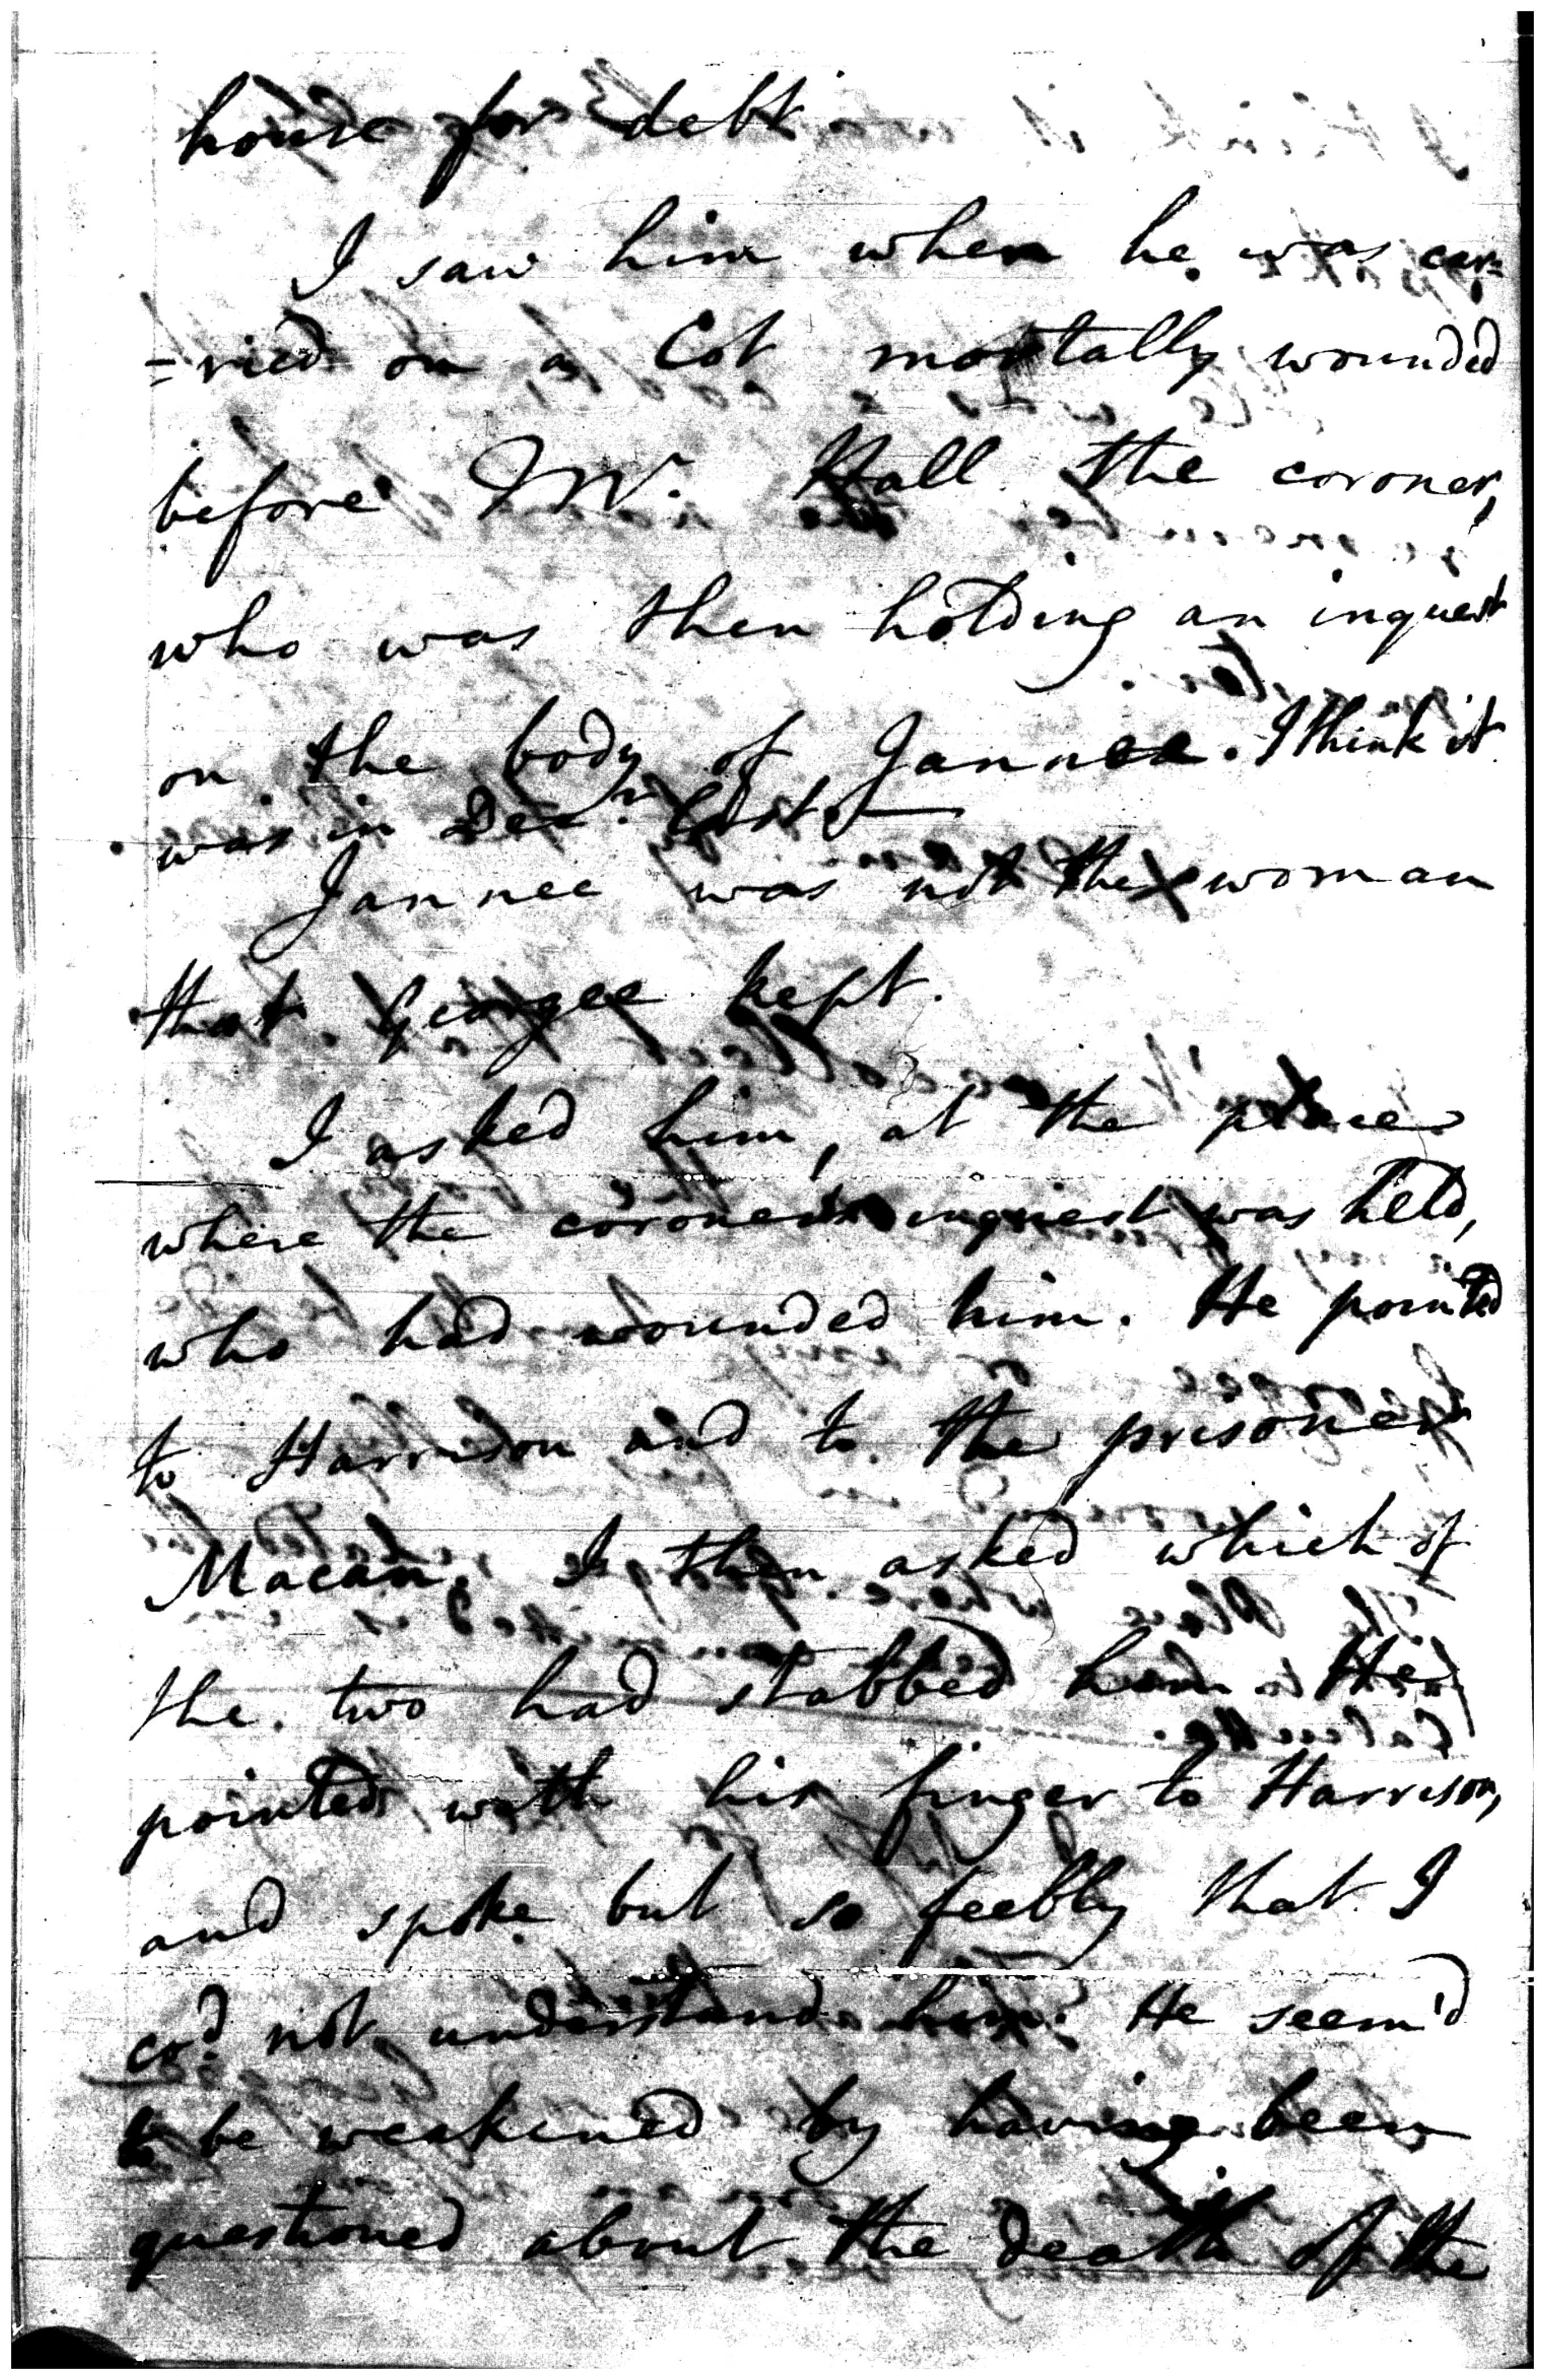 house for debt
I saw him when he was car=
=ried on a Cot mortally wounded
before Mr. Hall the coroner,
who was then holding an inquest
on the body of Jannee. I think it
was in Decr. last.
Jannee was not the woman
that Georgee kept.
I asked him, at the place
where the coroner's inquest was held,
who had wounded him. He pointed
to Harrison and to the prisoner
Macan. I then asked which of
the two had stabbed him. He
pointed with his finger to Harrison,
and spoke but so feebly that I
cod. not understand him. He seem'd
to be weakened by having been
questioned about the death of the